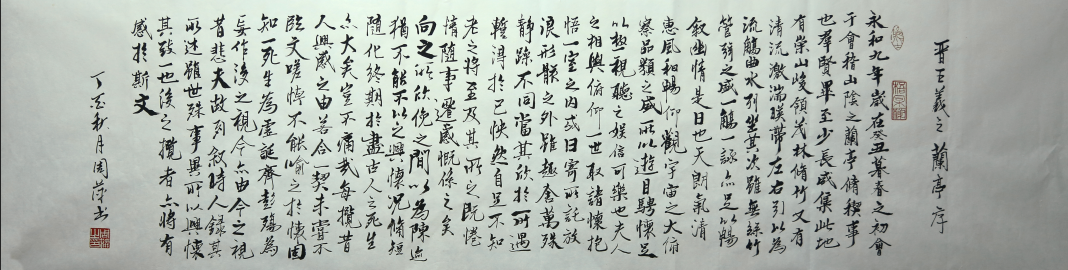 晋王羲之兰亭序
永和九年岁在癸丑暮春之初會
于會稽山陰之蘭亭脩稧事
也羣賢畢至少長咸集此地
有崇山峻領茂林脩竹又有
清流激湍暎帶左右引以為
流觴曲水列坐其次雖無絲竹
管弦之盛一觴一詠亦足以暢
叙幽情是日也天朗氣清
惠風和暢仰觀宇宙之大俯
察品類之盛所以遊目騁懷足
以極視聽之娛信可樂也夫人
之相與俯仰一世或取諸懷抱
悟一室之内或因寄所託放
浪形骸之外雖趣舍萬殊
靜躁不同當其欣於所遇
暫得於己快然自足不知
老之将至及其所之既惓
情随事遷感慨係之矣
向之所欣俛仰之間以為陳迹
猶不能不以之興懷況脩短
隨化終期於盡古人云死生
亦大矣豈不痛哉每攬昔
人興感之由若合一契未嘗不
臨文嗟悼不能喻之於懷固
知一死生為虛誕齊彭殤為
妄作後之視今亦由今之視
昔悲夫故列叙時人録其
所述雖世殊事異所以興懷
其致一也後之攬者亦将有
感於斯文
丁亥秋月周荣书